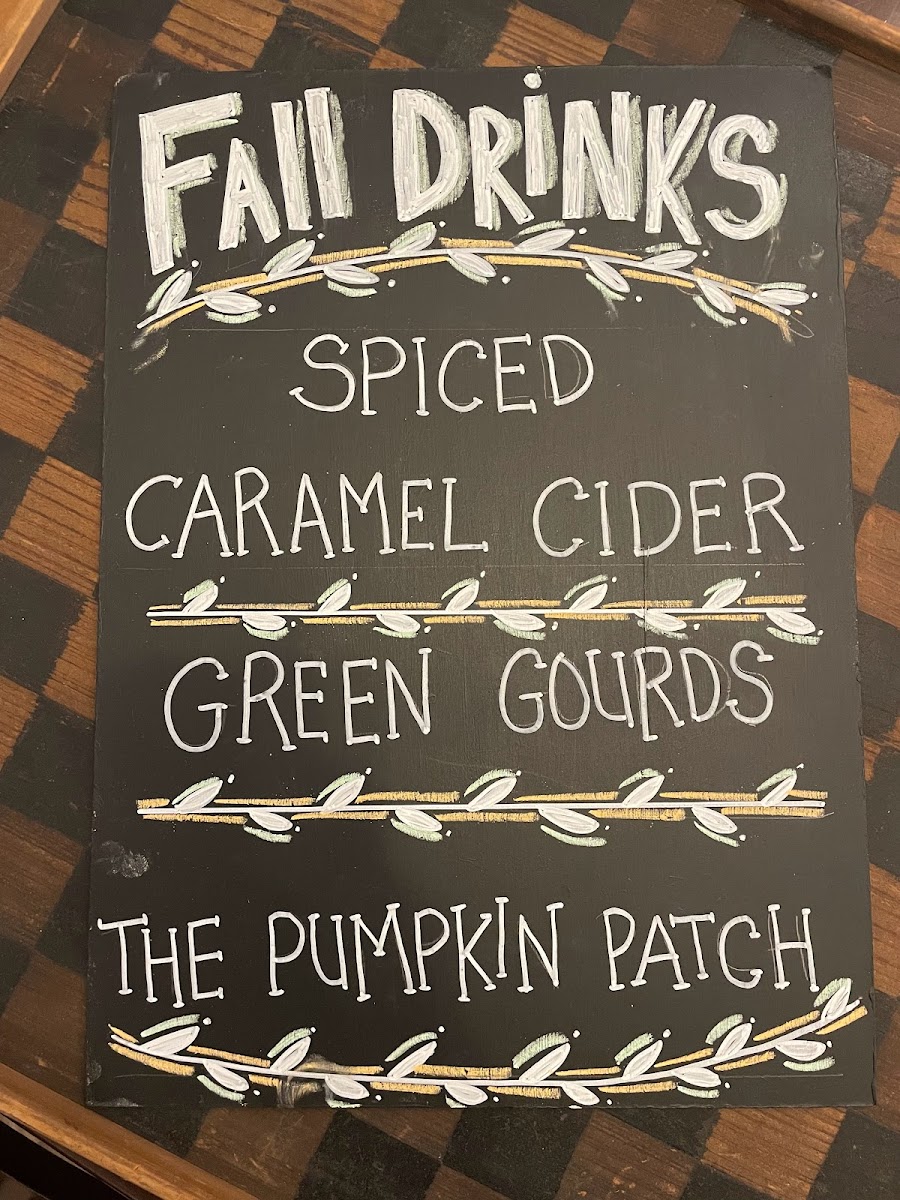 Fall DRiNKS
SPICED
CARAMEL CIDER
GREEN GOURDS
THE PUMPKIN PATCH